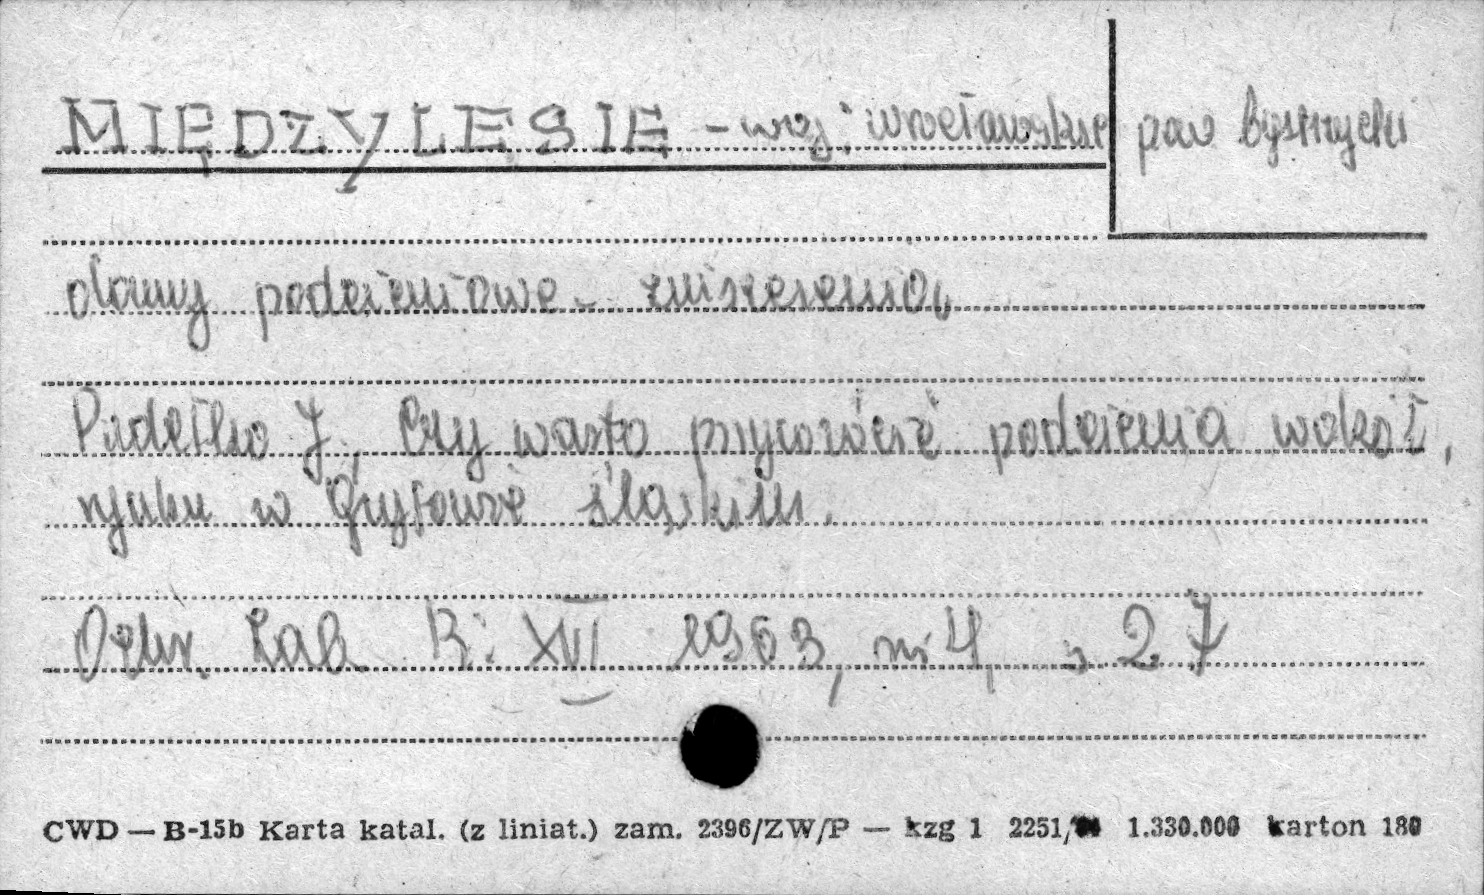 MIĘDZYLESIE - woj: wrocławskie pow bystrzycki
domy podcieniowe - zniszczenia,
Pudełko J, Czy warto przywrócić podcienia wokół,
rynku w Gryfowie śląskim.
Ochr. Zab. R: XVI 1963, nr 4, s 27
CWD — B-15b Karta katal. (z liniat.) zam. 2396/ZW/P — kzg 1 2251/ 1.330.000 karton 180